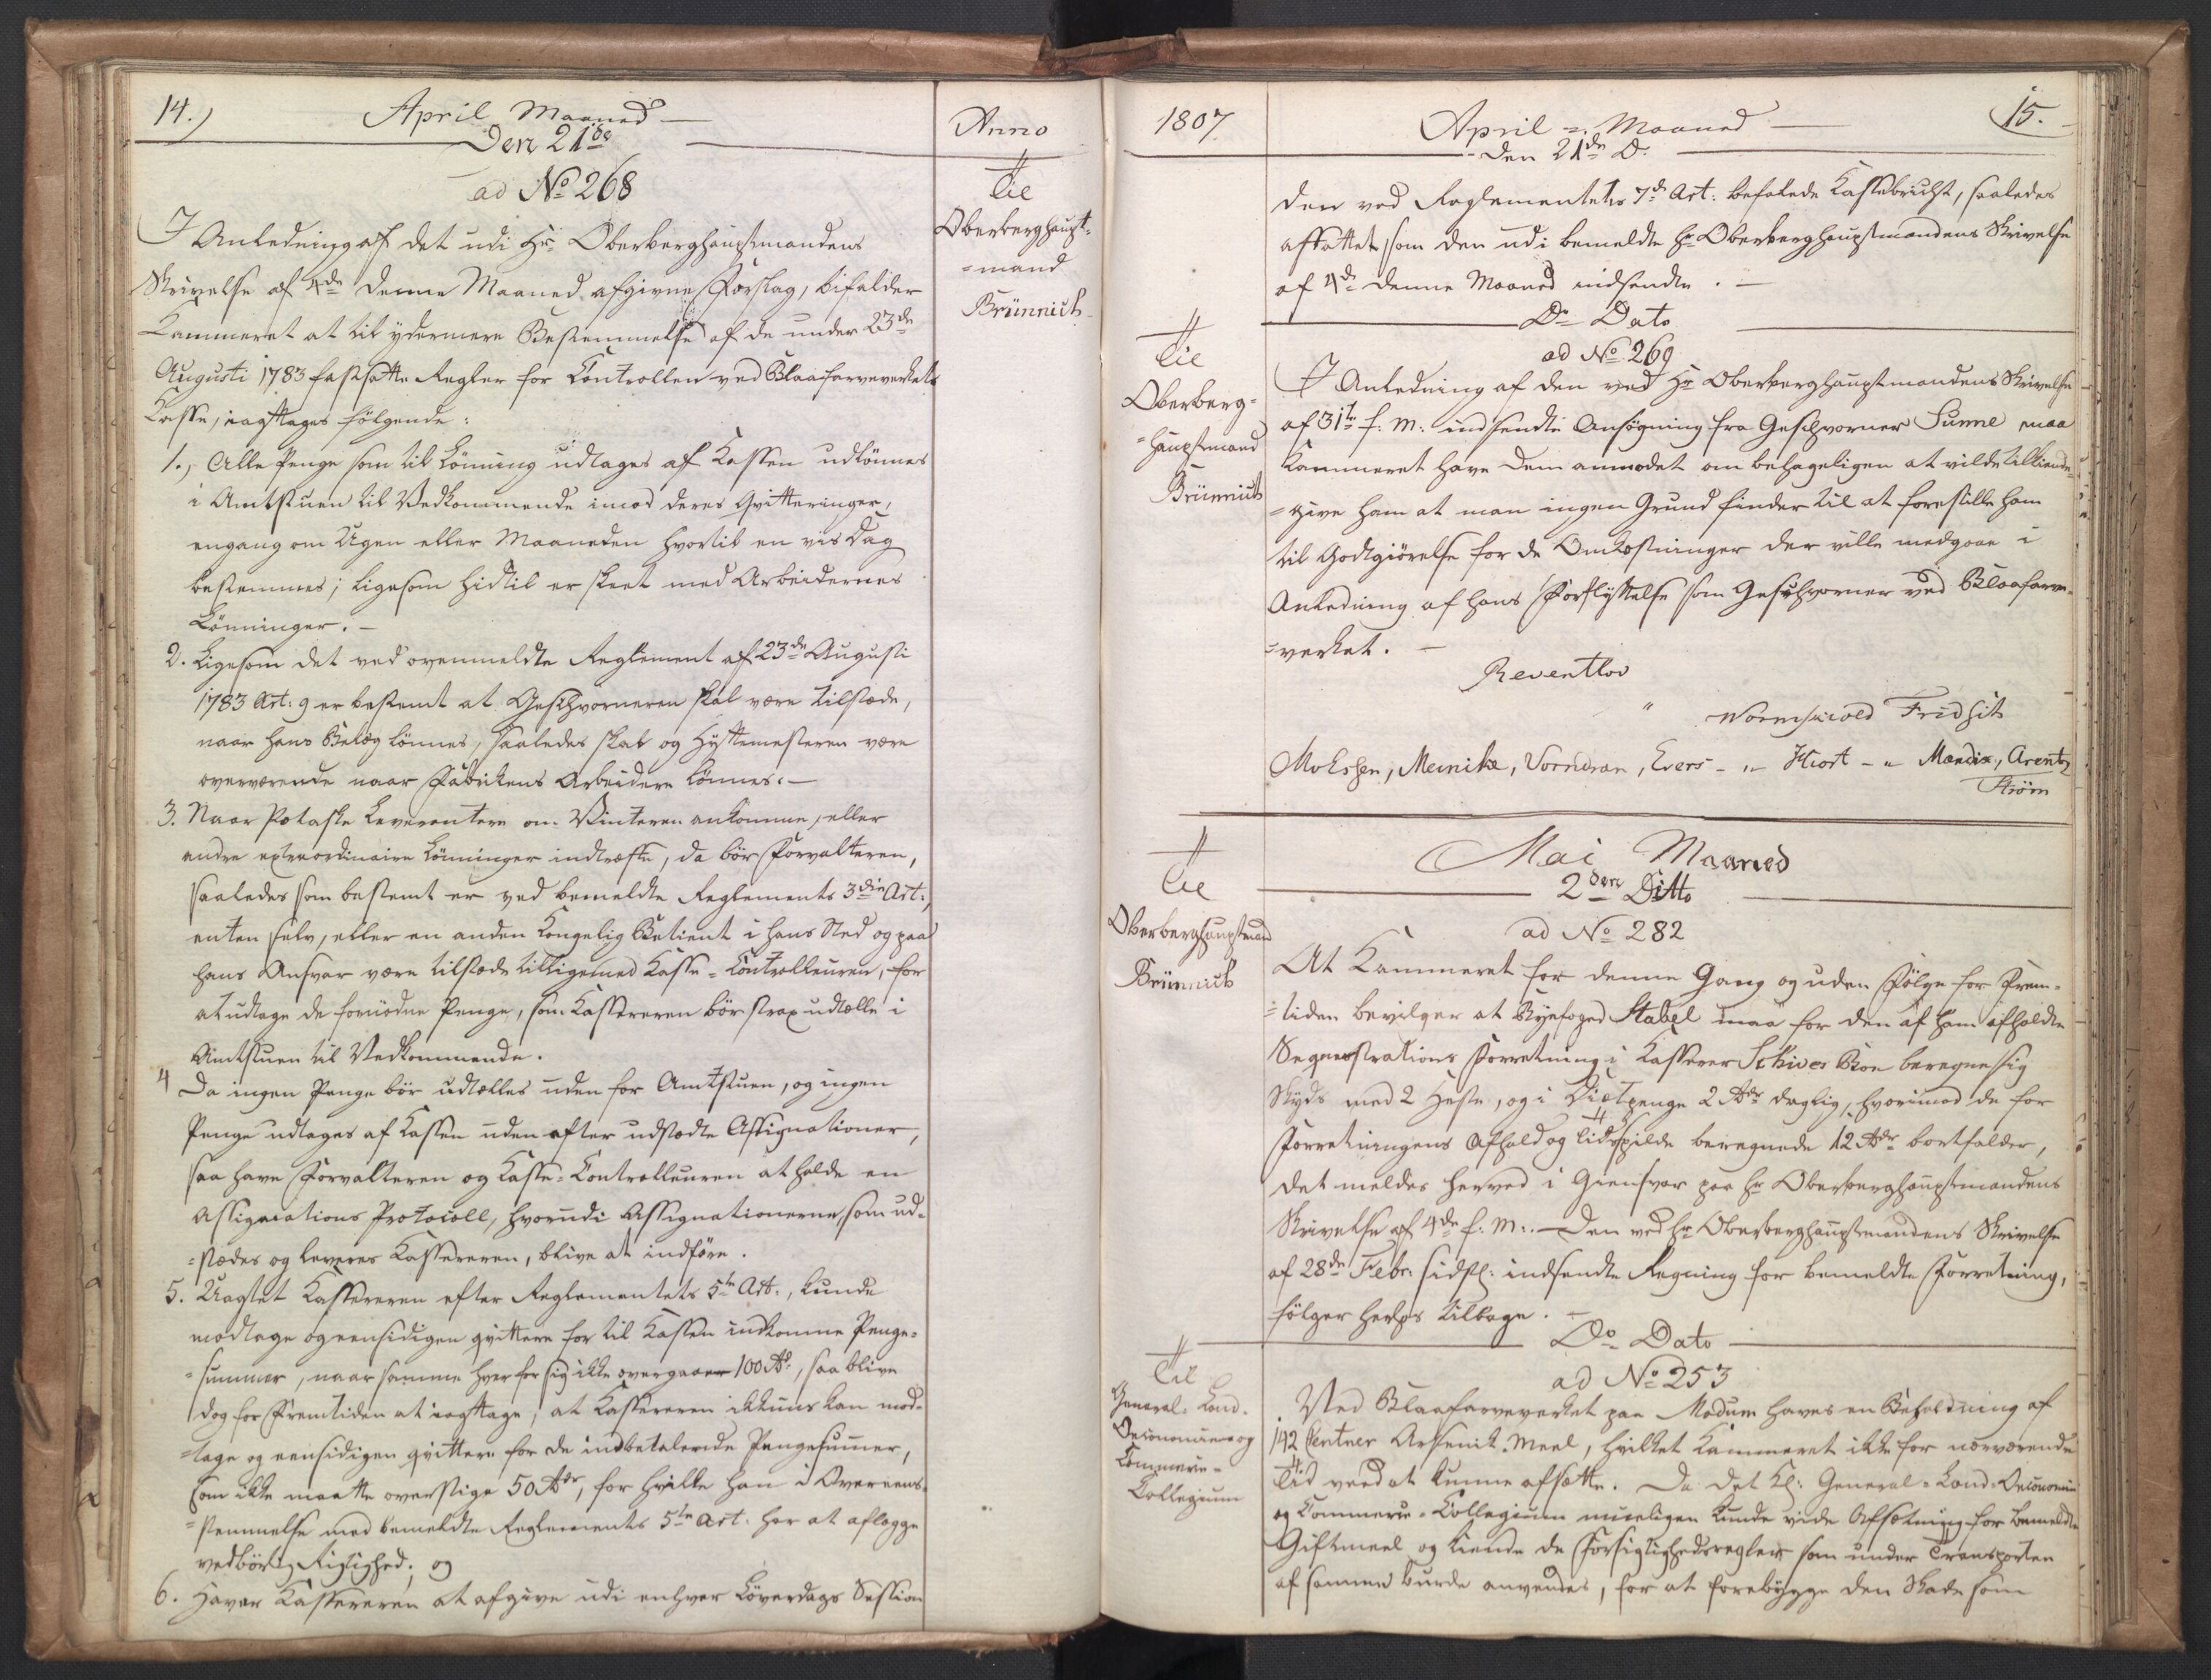 14.)
April Maaned
Den 21de
Anno
ad No 268
Til
Oberberghaupt=
=mand
Brünnich
I Anledning af det udi Hr. Oberberghauptmandens
Skrivelse af 4de denne Maaned afgivne Forslag, bifalder
Kammeret at til ydermere Bestemmelse af de under 23de
Augusti 1783 fastsatte Regler for Controllen ved Blaafarveverkets
Casse, iagttages følgende:
1., Alle Penge som til Lönning udtages af Kassen udlönnes
i Amtstuen til Vedkommende imod deres Qvitteringer,
engang om Ugen eller Maaneden hvortil en vis Dag
bestemmes; ligesom hidtil er skeet med Arbeidernes
Lönninger. –
2. Ligesom det ved ovenmeldte Reglement af 23de Augusti
1783 Art: 9 er bestemt at Geschvorneren skal være tilstæde,
naar hans Belæg lönnes, saaledes skal og Hyttemesteren være
overværende naar Fabrikens Arbeidere lönnes. –
3. Naar Potaske Leverantere om Vinteren ankomme, eller
andre extraordinaire Lönninger indtræffe, da bör Forvalteren,
saaledes som bestemt er ved bemeldte Reglements 3die Art:,
enten selv, eller en anden Kongelig Betient i hans Sted og paa
hans Ansvar være tilstæde tilligemed Kasse=Controlleuren, for
at udtage de fornödne Penge, som Kassereren bör strax udtælle i
Amtstuen til Vedkommende.
4 Da ingen Penge bör udtælles uden for Amtstuen, og ingen
Penge udtages af Kassen uden efter udstædte Assignationer,
saa have Forvalteren og Casse=Controlleuren at holde en
Assignations Protocoll, hvorudi Assignationerne, som ud=
=stædes og leveres Kassereren, blive at indföre.
5. Uagtet Kassereren efter Reglementets 5te Art:, kunde
modtage og eensidigen qvittere for til Kassen indkomne Penge=
=summer, naar samme hver for sig ikke overgaaer 100 Rd, saa blive
dog for Fremtiden at iagttage, at Kassereren ikkuns kan mod=
=tage og eensidigen qvittere for de indbetalende Pengesummer,
som ikke maatte overstige 50 Rdr, for hvilke han i Overeens=
=stemmelse med bemeldte Reglements 5te Art: har at aflægge
vedbörlig Rigtighed; og
6. Haver Kassereren at afgive udi enhver Löverdags Session
1807
April = Maaned
15.
den 21de D.
den ved Reglementets 7de Art: befalede Kassebericht, saaledes
affattet som den udi bemeldte Hr Oberberghauptmandens Skrivelse
af 4de denne Maaned indsendte. –
Do Dato
Til
Oberberg=
=hauptmand
Brünnich
ad No 269
I Anledning af den ved Hr Oberberghauptmandens Skrivelse
af 31te f: M: indsendte Ansögning fra Geschvorner Sunne maa
Kammeret have dem anmodet om behageligen at vilde tilkiende=
=give ham at man ingen Grund finder til at forestille ham
til Godtgiörelse for de Omkostninger der ville medgaae i
Anledning af hans Forflyttelse som Geschvorner ved Blaafarve=
=verket. –
Reventlov
" Wormskiold Fridsch
Molssen, Meinike, Vorndran, Evers – " Hiort – " Mandix, Arentz
Strøm
Mai Maaned
2den Ditto
Til
Oberberghauptmand
Brünnich
ad No 282
At Kammeret for denne Gang og uden Fölge for Frem=
=tiden bevilger at Byefoged Stabel maa for den af ham afholdte
Seqvestrations Forretning i Kasserer Schives Boe beregne sig
Skyds med 2 Heste, og i Diætpenge 2 Rdr daglig, hvorimod de for
Forretningens Afhold og Tidsspilde beregnede 12 Rdr bortfalder,
det meldes herved i Giensvar paa Hr Oberberghauptmandens
Skrivelse af 4de f: M:. – Den ved Hr Oberberghauptmandens Skrivelse
af 28de Febr: sidstl: indsendte Regning for bemeldte Forretning,
fölger herhos tilbage. –
Do Dato
Til
General=Land=
Oeconomie og
Commerce=
Collegium
ad No 253
Ved Blaafarveverket paa Modum haves en Beholdning af
142 Centner Arsenik=Meel, hvilket Kammeret ikke for nærværende
Tid veed at kunne afsætte. Da det Kl: General=Land=Oeconomie
og Commerce=Collegium mueligen kunde vide Afsætning for bemeldte
Giftmeel og kiende de Forsigtighedsregler som under Transporten
af samme burde anvendes, for at forebygge den Skade som